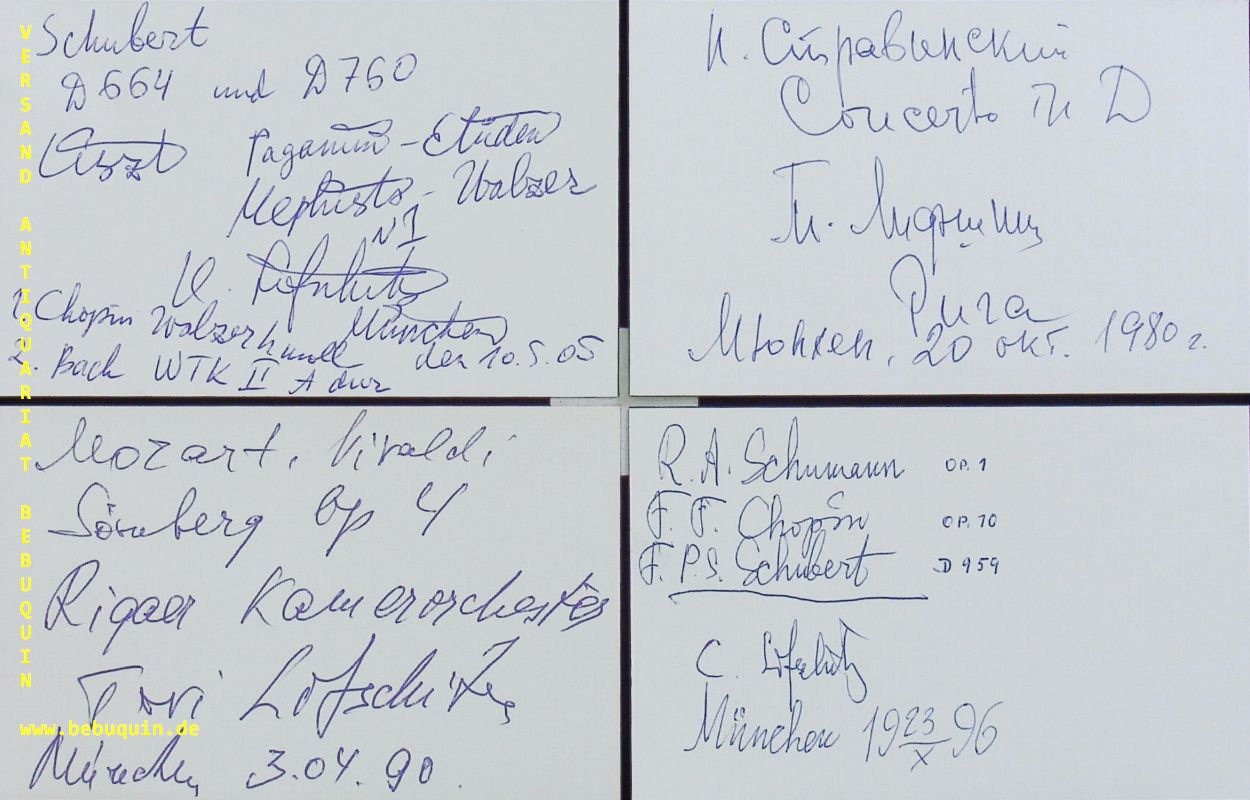 Schubert
D 664 und D 760
Liszt Paganini-Etüden
Mephisto-Walzer
N 1
1. Chopin Walzer München
2. Bach WTK II A dur den 10.5.05
И. Стравинский
Concerto in D
Т. Лифшиц
Рига
Мюнхен, 20 окт. 1980 г.
Mozart, Vivaldi
Op 4
Rigaer Kamerorchester
München, 3.04.90.
R. A. Schumann OP. 1
F. F. Chopin OP. 10
F. P. S. Schubert D 959
C. Lifschitz
München 19 23/X 96
VERSAND ANTIQUARIAT BEBUQUIN
www.bebuquin.de